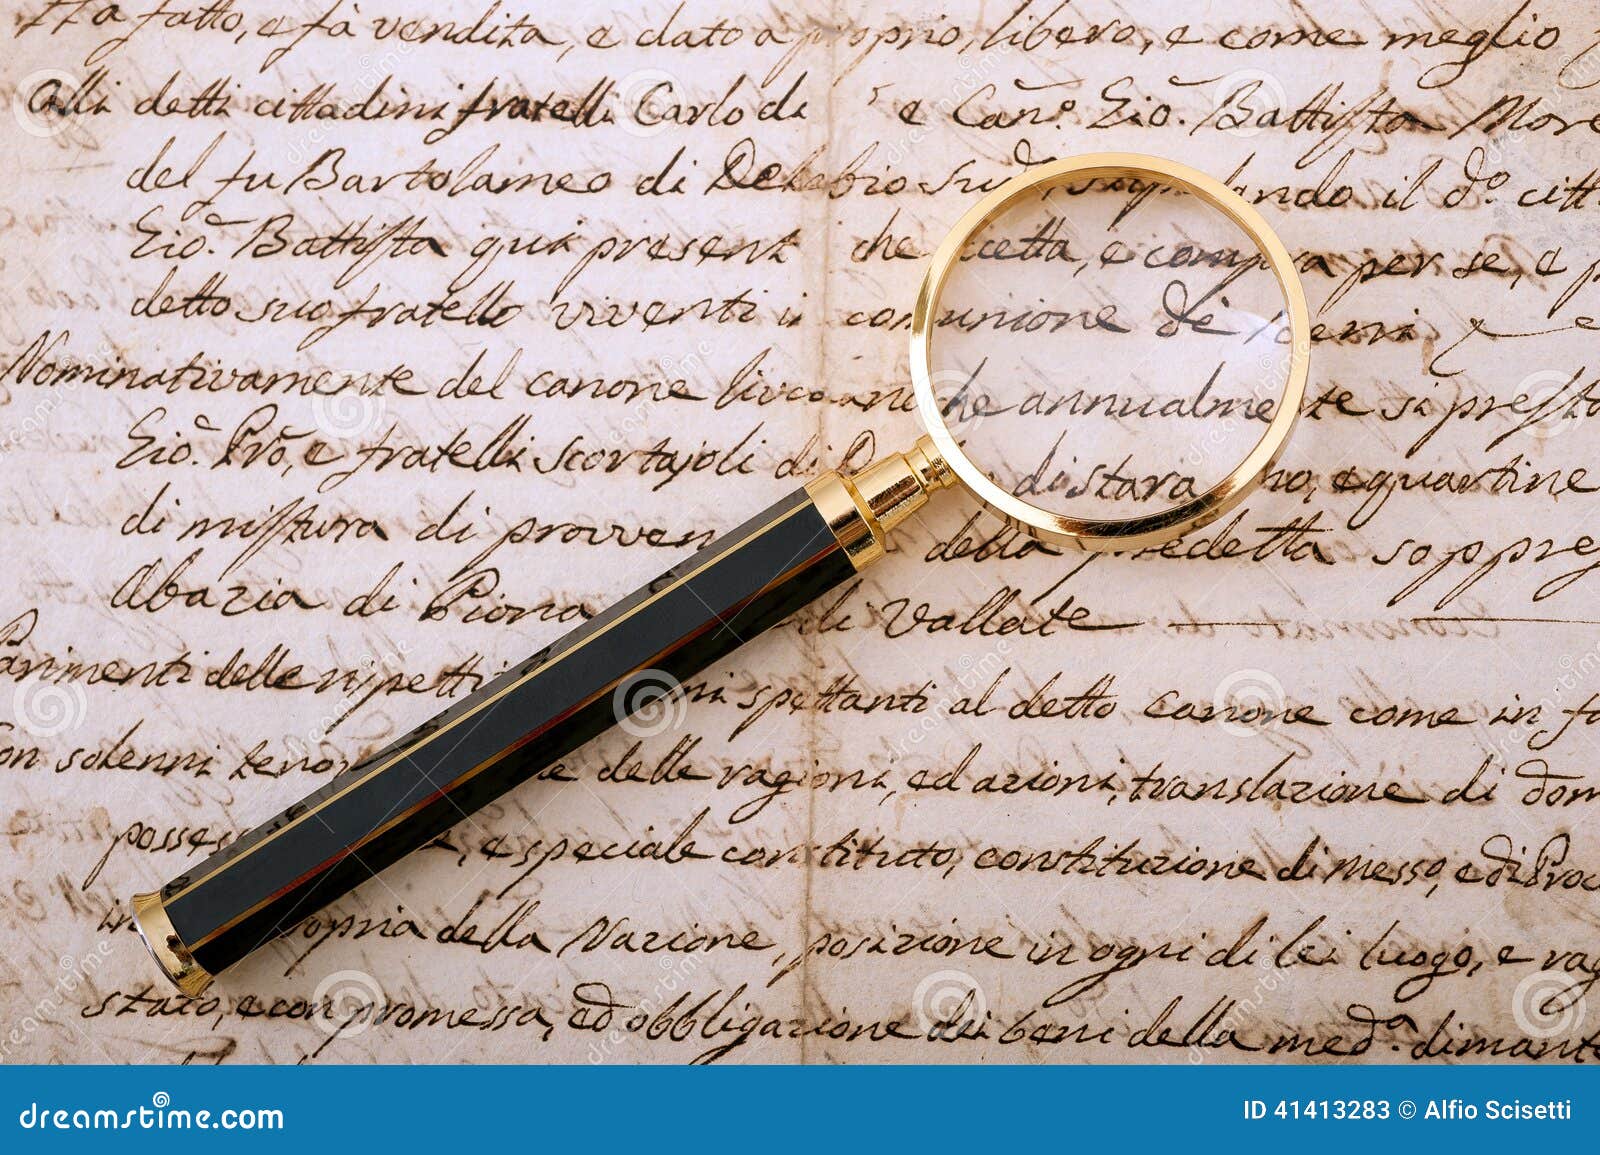 Ha fatto, e fà vendita, e dato a proprio, libero, e come meglio
Alli detti cittadini fratelli Carlo di e Cañ.º Gio. Battista More
del fu Bartolameo di il d.º citt
Gio. Battista qui present che ccetta, e compra per se, e p
detto suo fratello viventi i comunione de beni
Nominativamente del canone che annualme te si presta
Gio. Prõ, e fratelli scortajoli di di stara no, e quartine
di mistura di provven della predetta soppre
Abazia di Piona di Vallate
Parimenti delle rispetti ni spettanti al detto canone come in fa
on solenni tenor e delle ragioni, ed azioni, translazione di dom
posses e, e speciale constituto, constituzione di messo, e di Proc
in opria della Nazione, posizione in ogni di lei luogo, e rag
stato, e con promessa, ed obbligazione dei beni della med.ª dimant
dreamstime.com
ID 41413283 © Alfio Scisetti